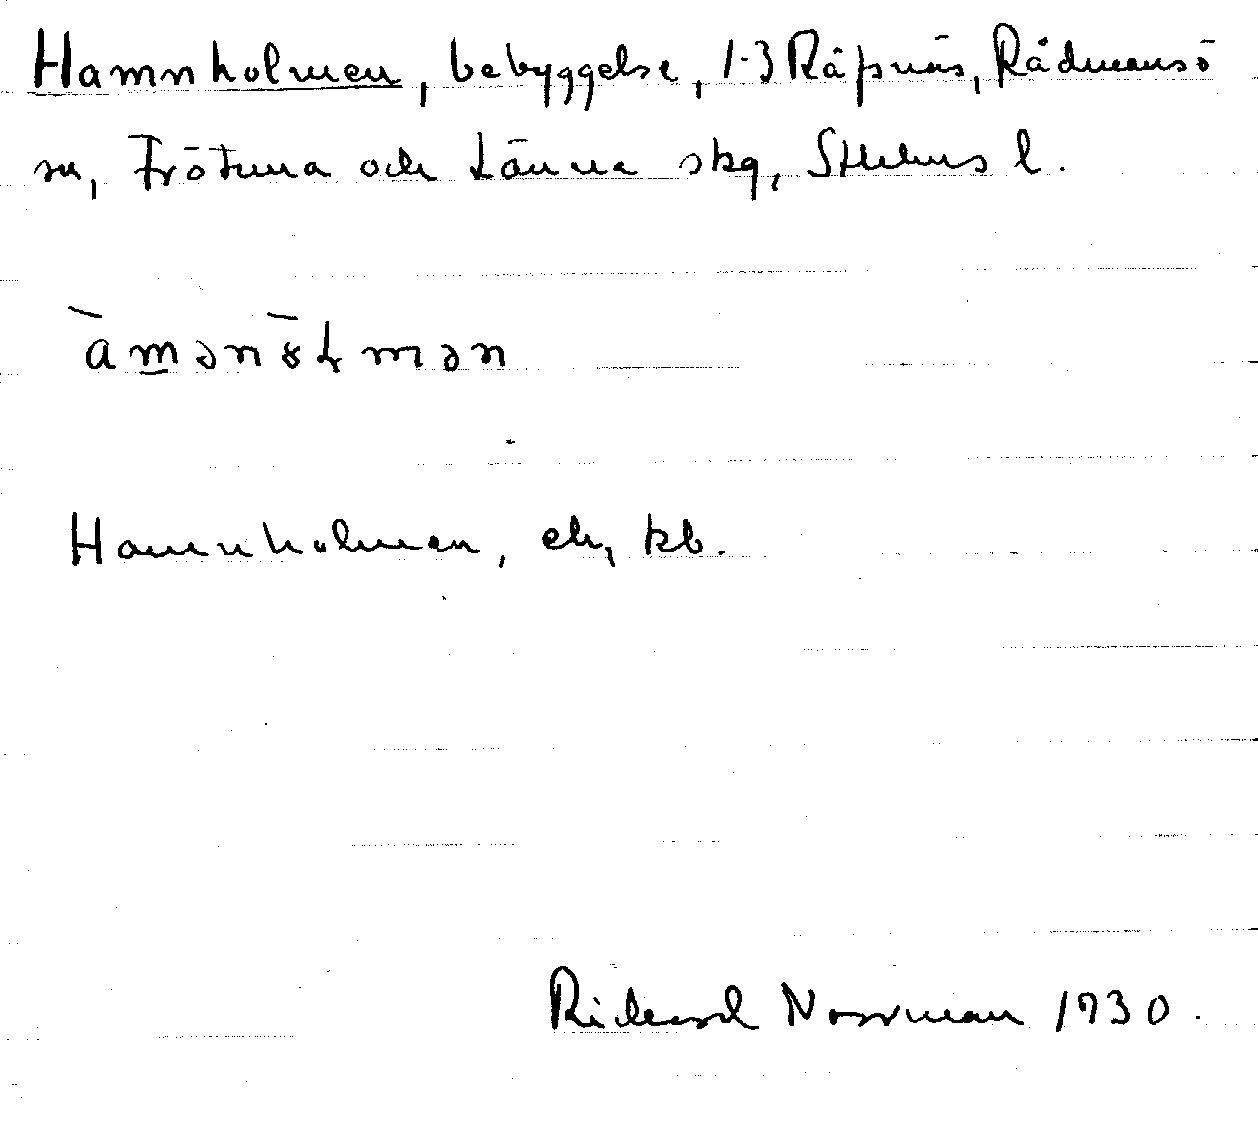 Hamnholmen, bebyggelse, 1-3 Räfsnäs, Rådmansö
sn, Frötuna och Länna skg, Sthlms l.
àmənòłmən
Hamnholmen, ek, kb.
Rickard Norrman 1930.